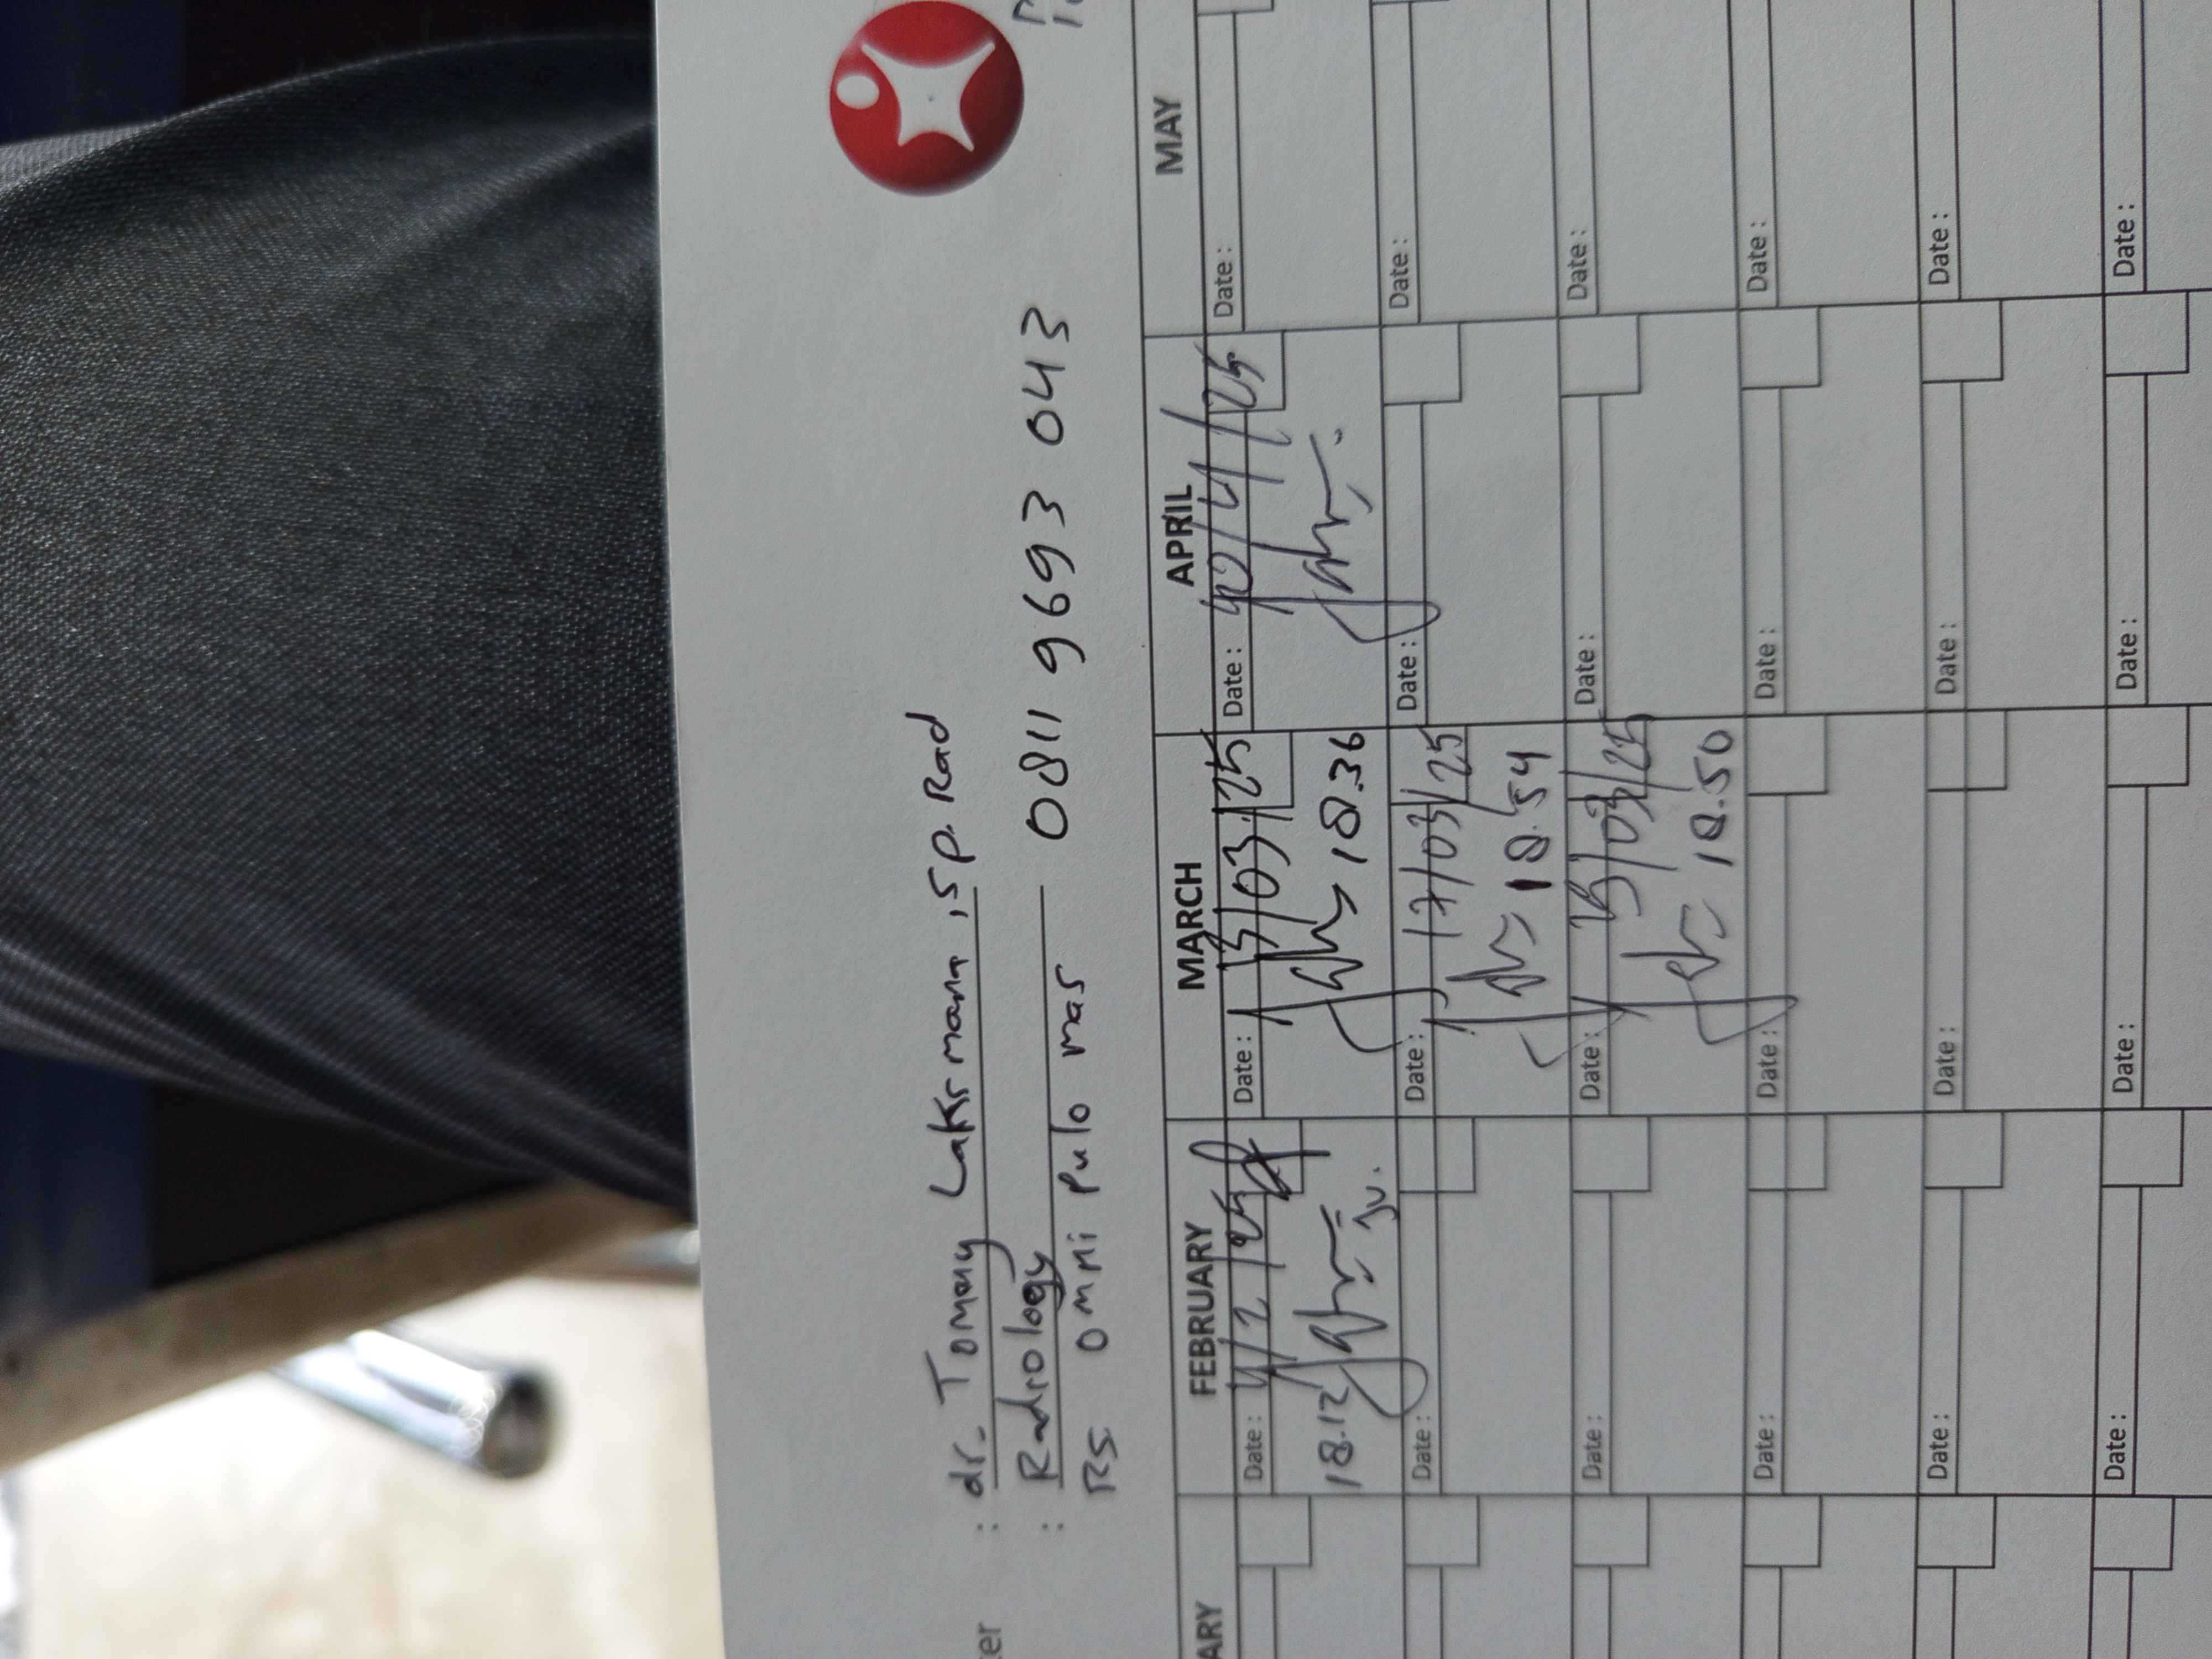 : dr. Tommy Laksmana, Sp. Rad
: Radiology 0811 9693 043
RS OMNI Pulo mas
FEBRUARY MARCH APRIL MAY
Date : 4/2/25 Date : 13/03/25 Date : /4/25 Date :
18.12 18.36
Date : Date : 17/03/25 Date : Date :
18.54
Date : Date : /03/25 Date : Date :
18.50
Date : Date : Date : Date :
Date : Date : Date : Date :
Date : Date : Date : Date :